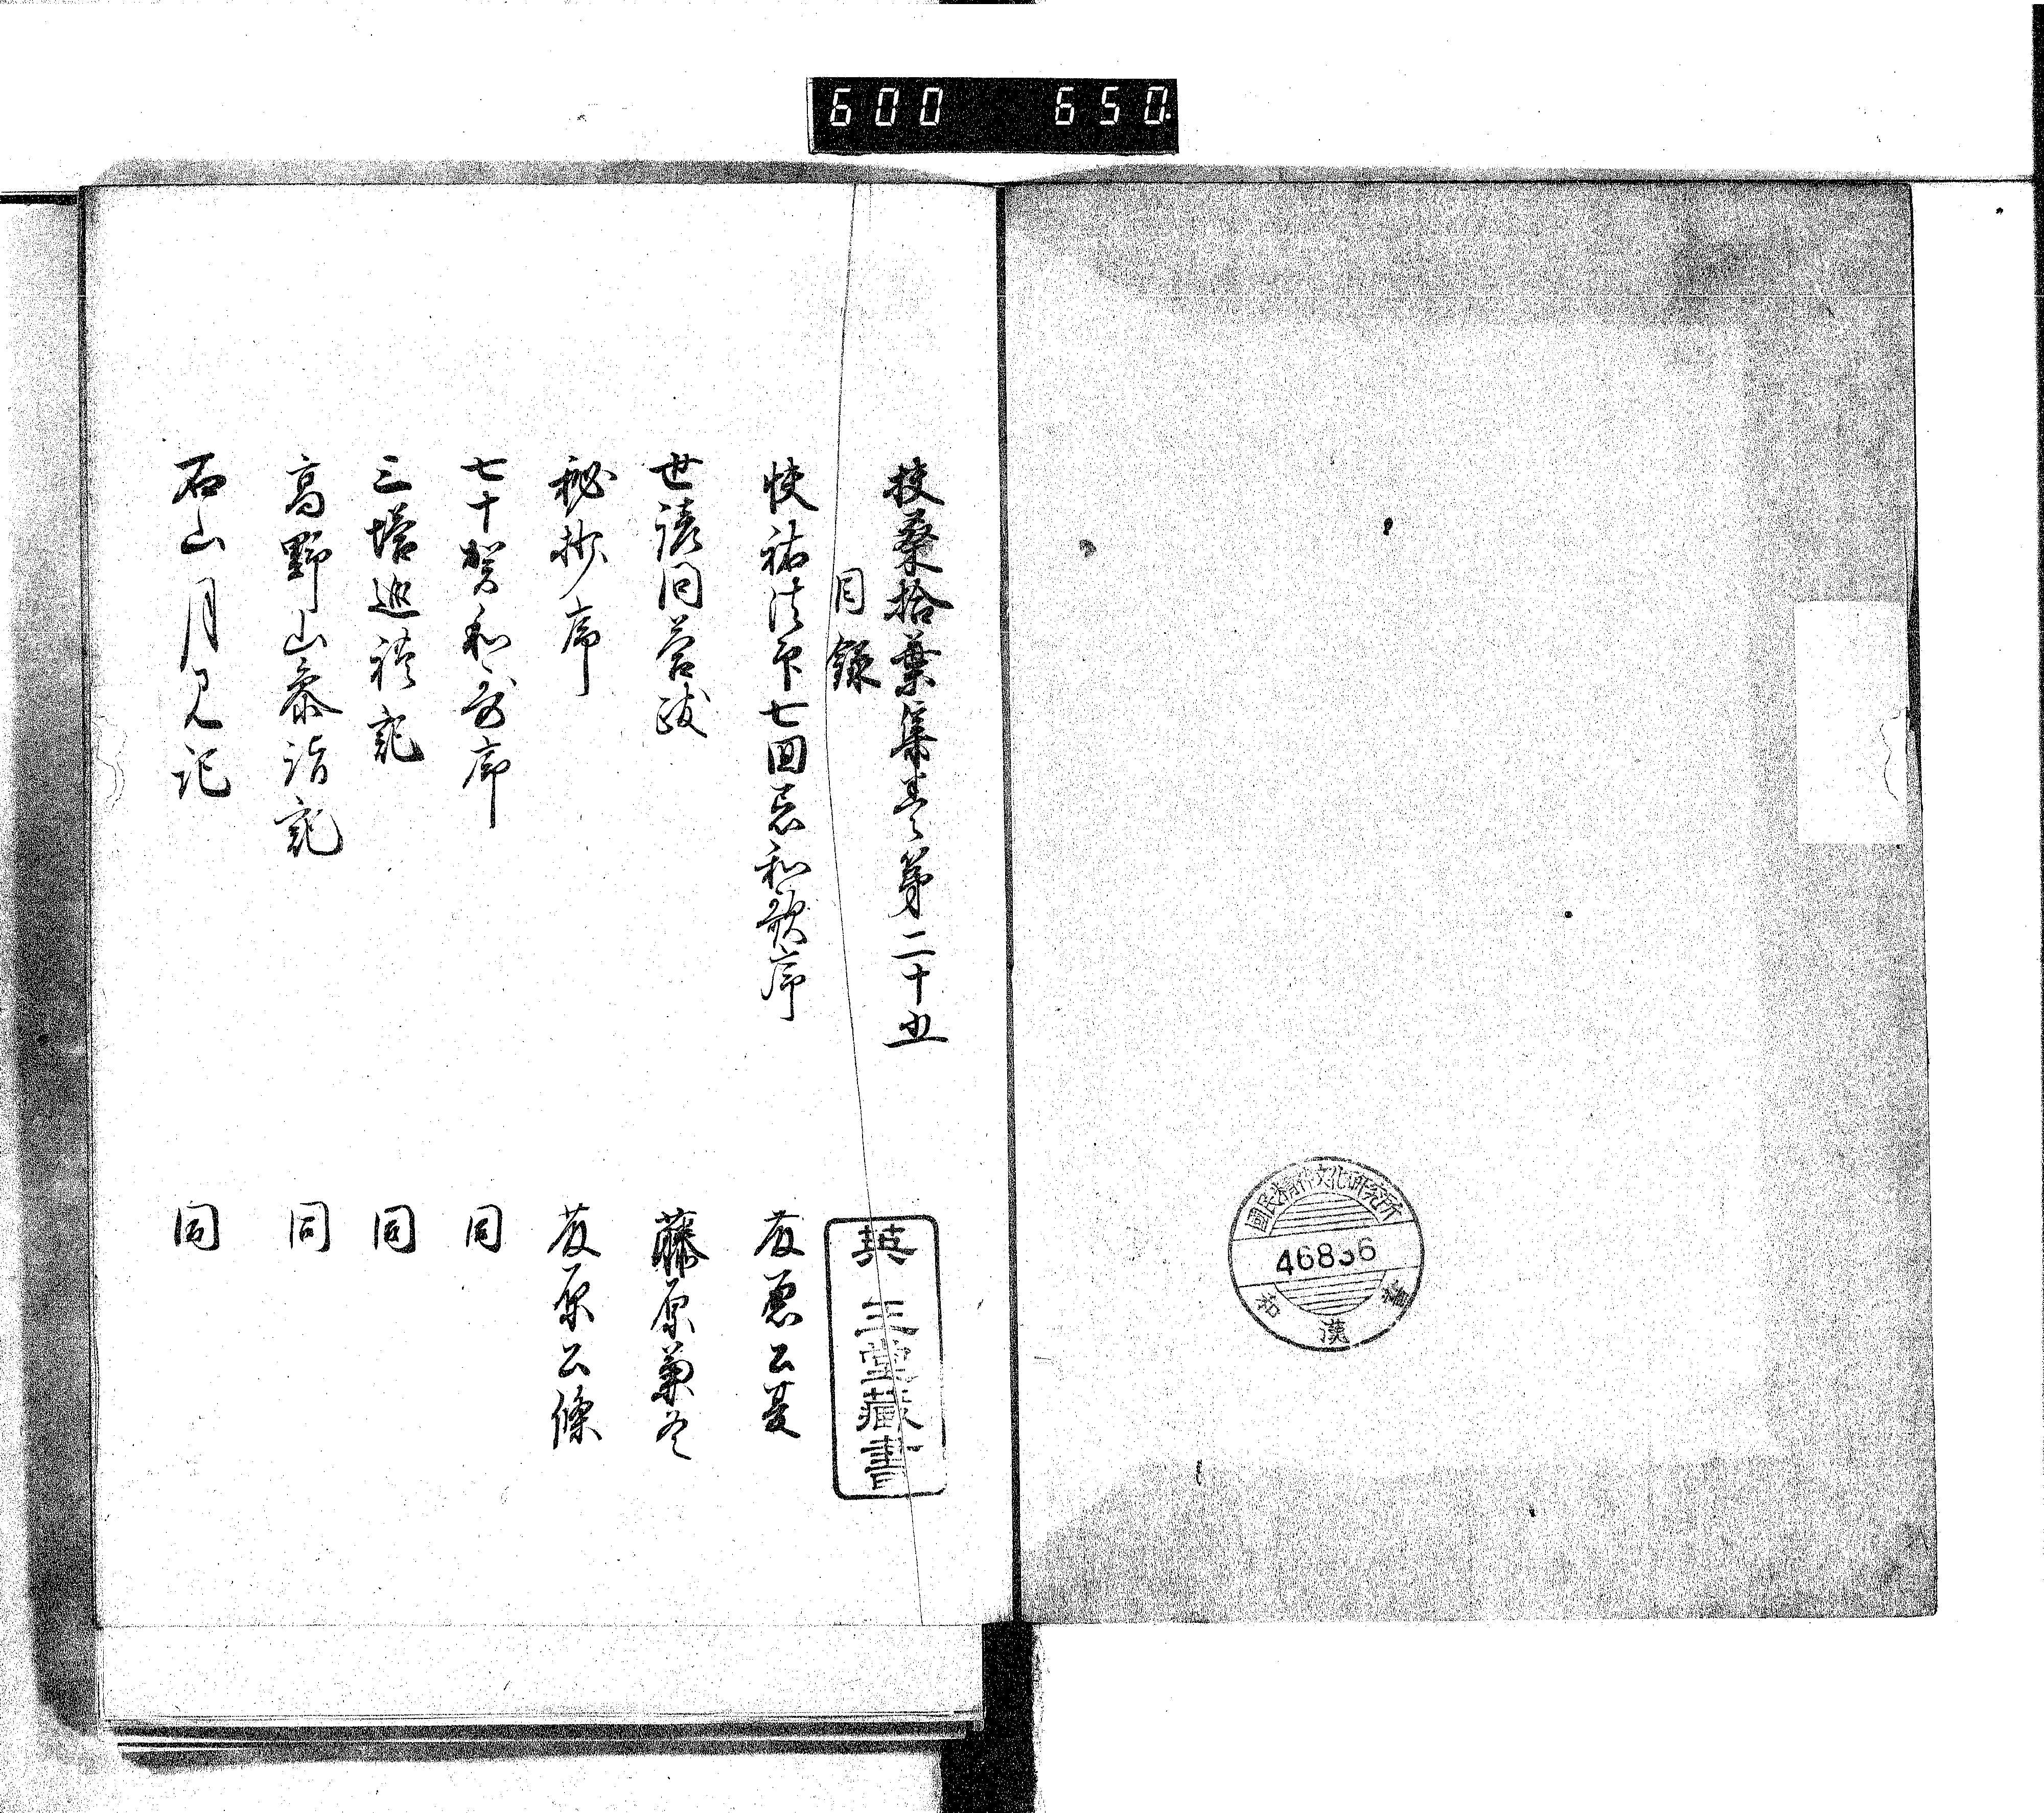 600 650
國民精神文化研究所
46836
和漢書
扶桑拾葉集巻第二十五
目録
快祐法印七回忌和歌序 藤原公夏
世諺問答跋 藤原兼冬
秘抄序 藤原公條
七十賀和哥序 同
三塔巡礼記 同
高野山参詣記 同
石山月見記 同
英 王堂蔵書